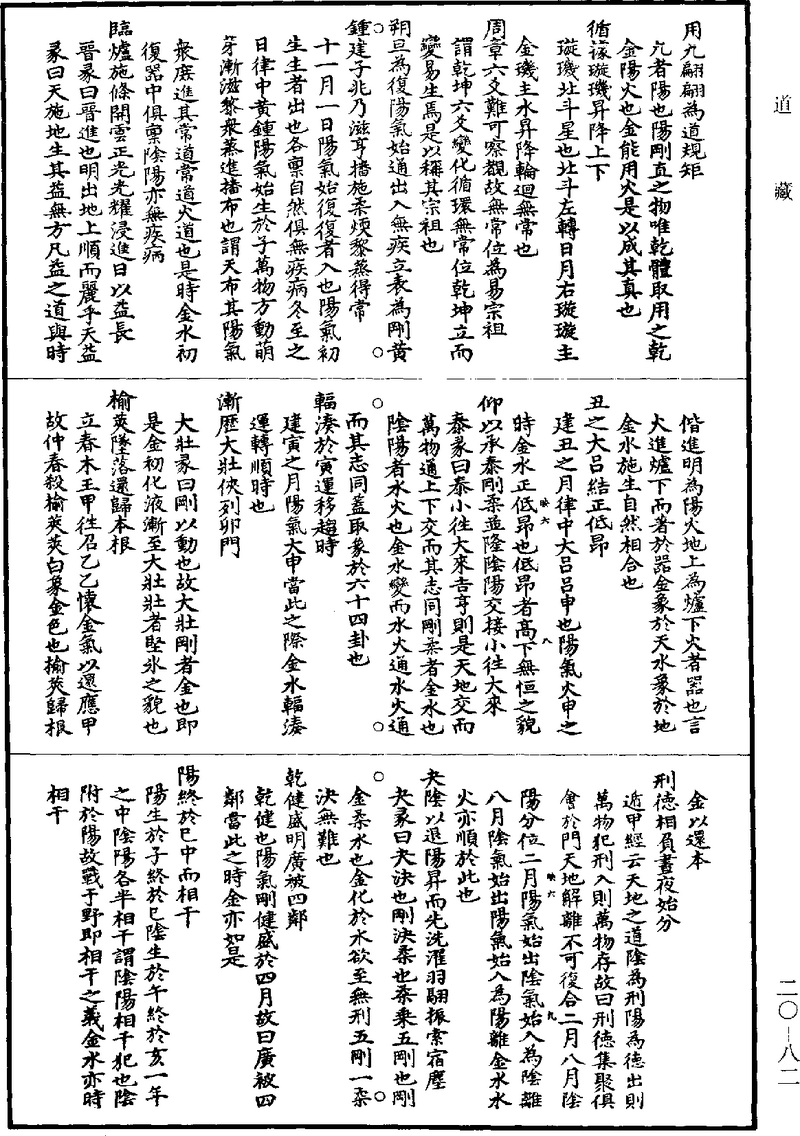 道藏
用九翩翩為道規矩
九者陽也陽剛直之物唯乾體取用之乾
金陽火也金能用火是以成其真也
循據璇璣昇降上下
璇璣北斗星也北斗左轉日月右璇璇主
金璣主水昇降輪迴無常也
周章六爻難可察覩故無常位為易宗祖
謂乾坤六爻變化循環無常位乾坤立而
變易生焉是以稱其宗祖也
朔旦為復陽氣始通出入無疾立表為剛黃
鍾建子兆乃滋亨播施柔煖黎蒸得常
十一月一日陽氣始復復者入也陽氣初
生生者出也各稟自然俱無疾病冬至之
日律中黃鍾陽氣始生於子萬物方動萌
芽漸滋黎衆蒸進播布也謂天布其陽氣
衆庶進其常道常道火道也是時金水初
復器中俱稟陰陽亦無疾病
臨爐施條開雲正光光耀浸進日以益長
晉彖曰晉進也明出地上順而麗乎天益
彖曰天施地生其益無方凡益之道與時
偕進明為陽火地上為爐下火者器也言
火進爐下而著於器金象於天水象於地
金水施生自然相合也
丑之大呂結正低昂
建丑之月律中大呂呂申也陽氣火申之
時金水正低昂也低昂者高下無恒之貌
仰以承泰剛柔並隆陰陽交接小往大來
泰彖曰泰小往大來吉亨則是天地交而
萬物通上下交而其志同剛柔者金水也
陰陽者水火也金水變而水火通水火通
而其志同蓋取象於六十四卦也
輻湊於寅運移趨時
建寅之月陽氣大申當此之際金水輻湊
運轉順時也
漸歷大壯俠列卯門
大壯彖曰剛以動也故大壯剛者金也即
是金初化液漸至大壯壯者堅氷之貌也
榆莢墜落還歸本根
立春木王甲往召乙乙懷金氣以還應甲
故仲春殺榆莢莢白象金色也榆莢歸根
金以還本
刑德相負晝夜始分
遁甲經云天地之道陰為刑陽為德出則
萬物犯刑入則萬物存故曰刑德集聚俱
會於門天地解離不可復合二月八月陰
陽分位二月陽氣始出陰氣始入為陰離
八月陰氣始出陽氣始入為陽離金水水
火亦順於此也
夬陰以退陽昇而先洗濯羽翮振索宿塵
夬彖曰夬決也剛決柔也柔乘五剛也剛
金柔水也金化於水欲至無刑五剛一柔
決無難也
乾健盛明廣被四鄰
乾健也陽氣剛健盛於四月故曰廣被四
鄰當此之時金亦如是
陽終於巳中而相干
陽生於子終於巳陰生於午終於亥一年
之中陰陽各半相干謂陰陽相干犯也陰
附於陽故戰于野即相干之義金水亦時
相干
二〇-八二